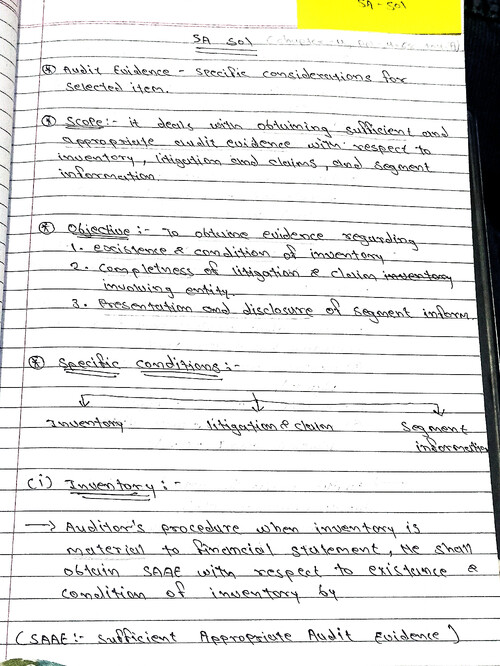 SA - 501
SA 501
(*) Audit Evidence - specific considerations for
selected item.
(*) Scope :- it deals with obtaining sufficient and
appropriate audit evidence with respect to
inventory, litigation and claims, and segment
information.
(*) Objective :- To obtaine evidence regarding
1. existence & condition of inventory
2. Completness of litigation & claim inventory
involving entity.
3. Presentation and disclosure of segment inform
(*) Specific conditions :-
Inventory litigation & claim Segment
information
(i) Inventory :-
→ Auditor's procedure when inventory is
material to financial statement, He shall
obtain SAAE with respect to existance &
condition of inventory by
(SAAE :- Sufficient Appropriate Audit Evidence)